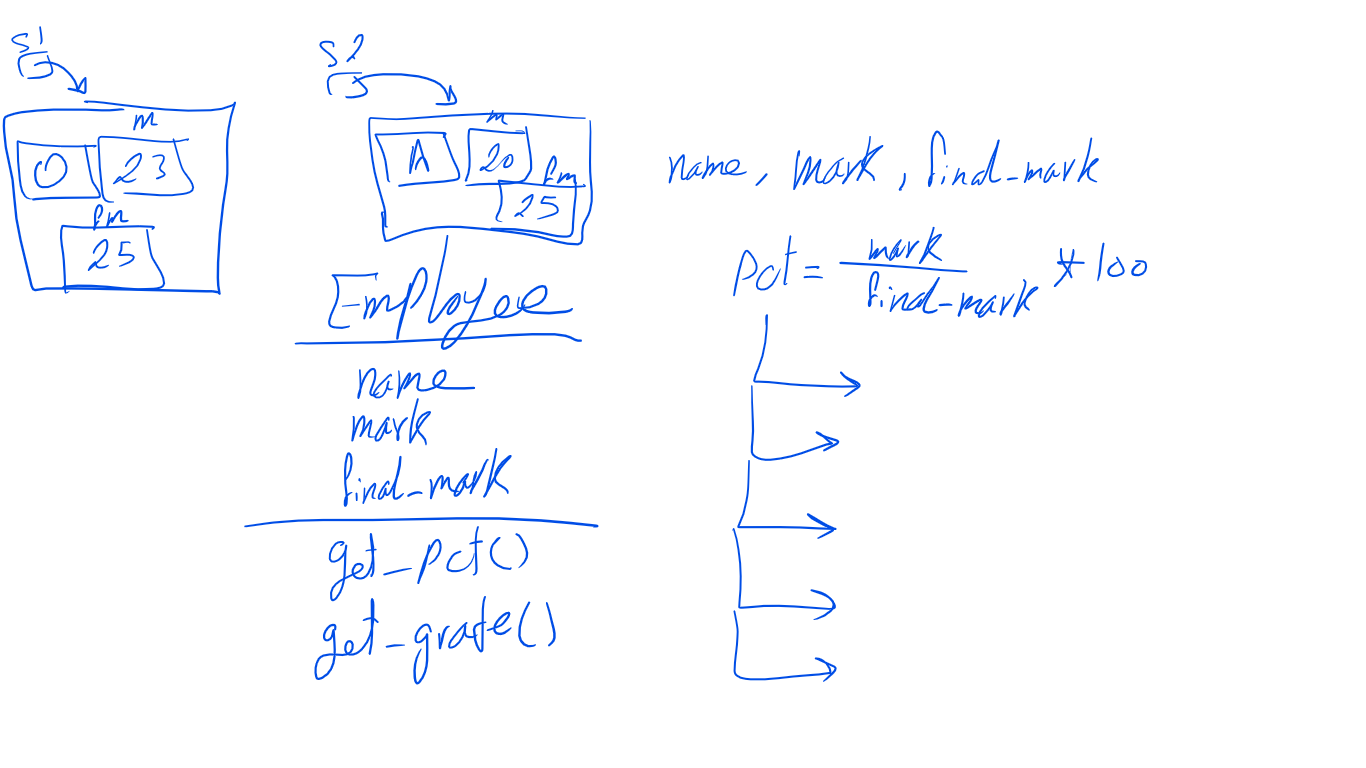 S1
m
O 23
fm
25
S2
m
A 20
fm
25
Employee
name
mark
final_mark
get_pct()
get_grade()
name, mark, final_mark
pct = mark
final_mark * 100